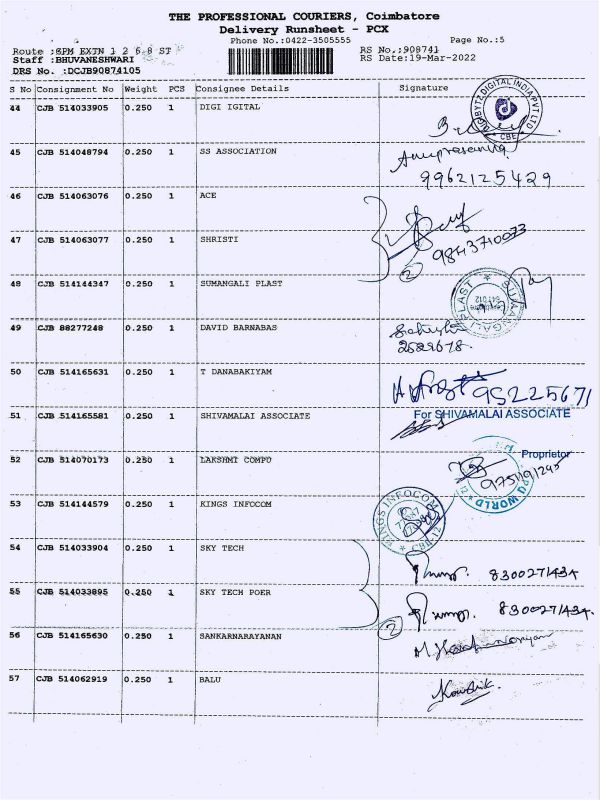 THE PROFESSIONAL COURIERS, Coimbatore
Delivery Runsheet - PCX
Phone No.:0422-3505555 Page No.:5
Route :SPM EXTN 1 2 6 8 ST RS No.:908741
Staff :BHUVANESHWARI RS Date:19-Mar-2022
DRS No. :DCJB90874105
S No Consignment No Weight PCS Consignee Details Signature
44 CJB 514033905 0.250 1 DIGI IGITAL
DIGITAL INDIA PVT LTD
CBE
45 CJB 514048794 0.250 1 SS ASSOCIATION
9962125429
46 CJB 514063076 0.250 1 ACE
47 CJB 514063077 0.250 1 SHRISTI 9843710073
2
48 CJB 514144347 0.250 1 SUMANGALI PLAST
SUMANGALI PLAST
49 CJB 88277248 0.250 1 DAVID BARNABAS
2529678
50 CJB 514165631 0.250 1 T DANABAKIYAM
95225671
51 CJB 514165581 0.250 1 SHIVAMALAI ASSOCIATE For SHIVAMALAI ASSOCIATE
Proprietor
52 CJB 514070173 0.250 1 LAKSHMI COMPU
9751191245
WORLD
53 CJB 514144579 0.250 1 KINGS INFOCOM
KINGS INFOCOM
54 CJB 514033904 0.250 1 SKY TECH
8300271434
55 CJB 514033895 0.250 1 SKY TECH POER
8300271434
2
56 CJB 514165630 0.250 1 SANKARNARAYANAN
57 CJB 514062919 0.250 1 BALU
Kowshik